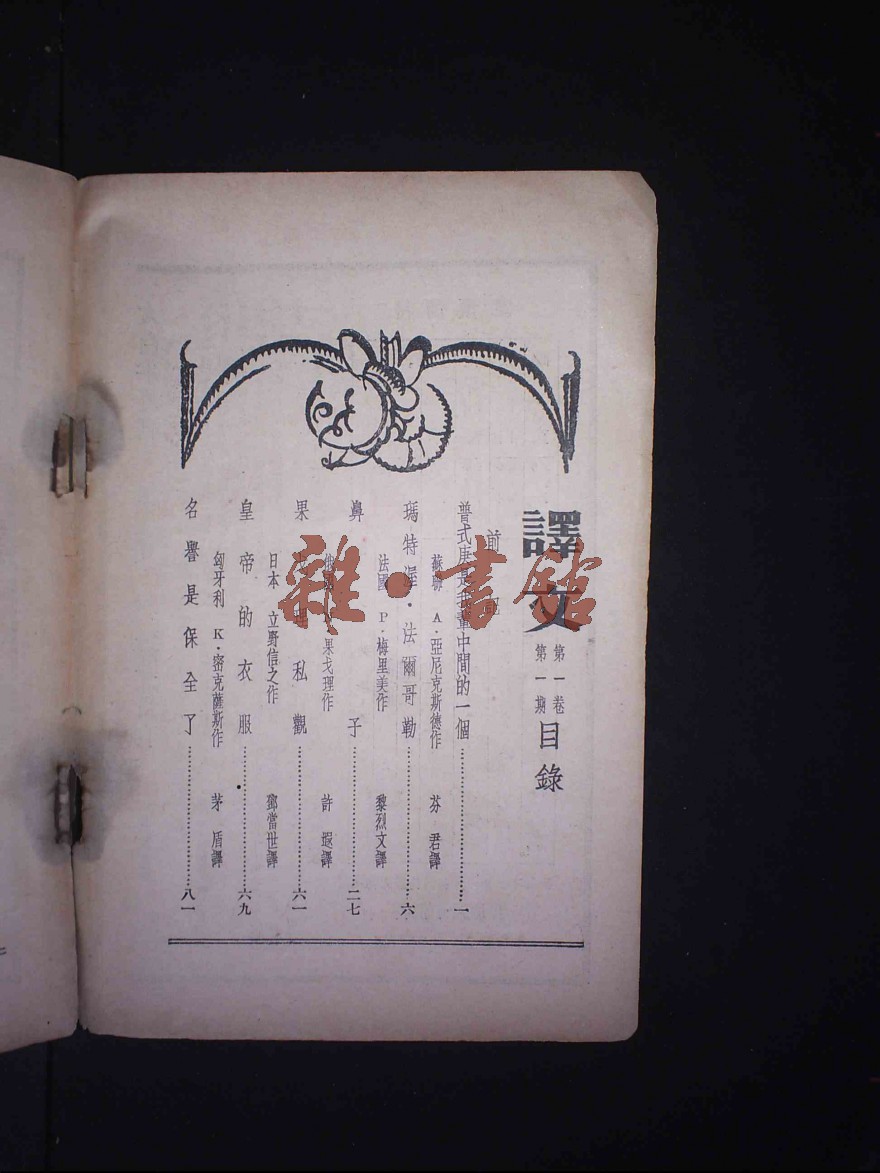 譯文
第一卷
第一期
目錄
前
普式庚是我書中間的一個…………一
蘇聯 A·亞尼克斯德作 芬君譯
瑪特渥·法爾哥勒…………六
法國 P·梅里美作 黎烈文譯
鼻子…………二七
果戈理作 許遐譯
果戈理私觀…………六一
日本 立野信之作 鄧當世譯
皇帝的衣服…………六九
匈牙利 K·密克薩斯作 茅盾譯
名譽是保全了…………八一
雜·書館